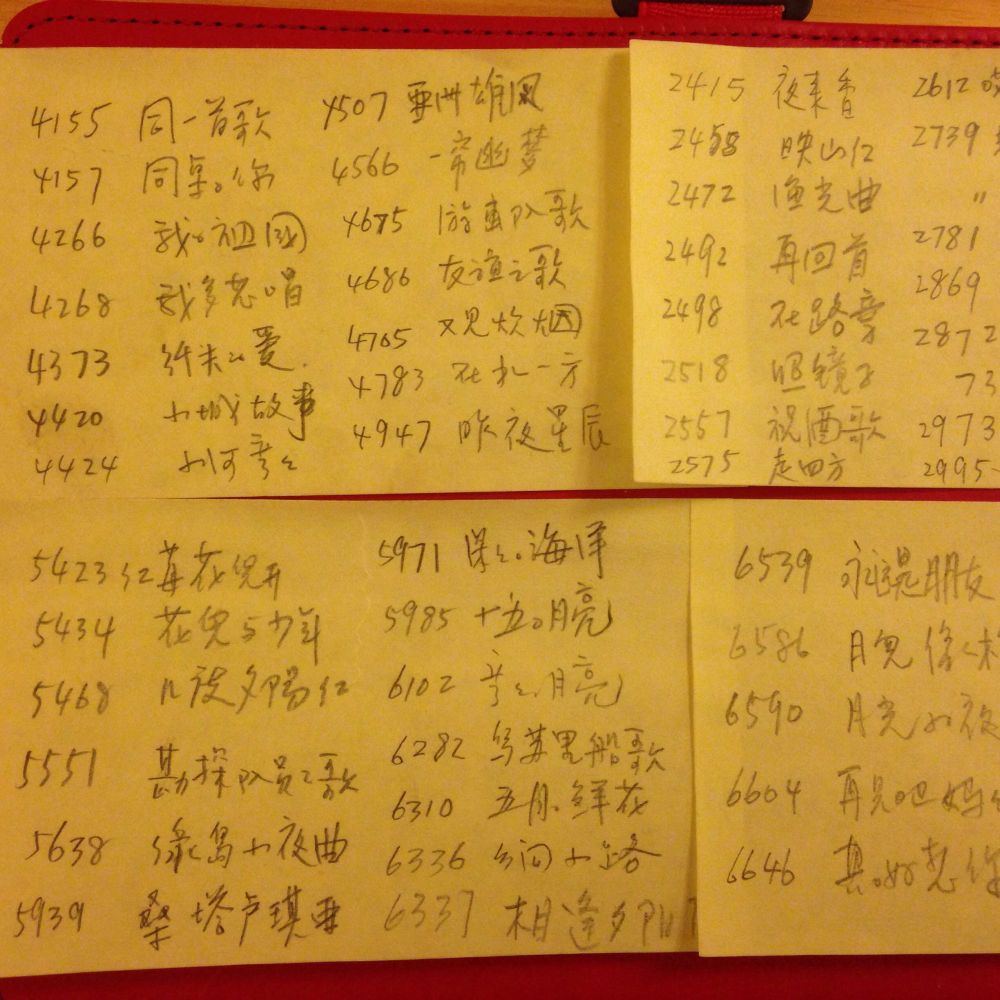 4155 同一首歌
4157 同桌的你
4266 我的祖國
4268 我多想唱
4373 纤夫的爱.
4420 小城故事
4424 小河弯弯
4507 亚洲雄风
4566 一帘幽梦
4685 游击队歌
4686 友谊之歌
4705 又见炊烟
4783 在水一方
4947 昨夜星辰
2415 夜来香
2458 映山红
2472 渔光曲
2492 再回首
2498 在路旁
2518 照镜子
2557 祝酒歌
2575 走四方
2612
2739
"
2781
2869
2872
73
2973
2995
5423 红莓花兒开
5434 花兒与少年
5468 几度夕陽红
5551 勘探队员之歌
5638 绿岛小夜曲
5939 桑塔卢琪亚
5971 深深的海洋
5985 十五的月亮
6102 弯弯的月亮
6282 乌苏里船歌
6310 五月的鲜花
6336 乡间小路
6337 相逢夕阳
6539 永远是朋友
6586 月兒像柠
6590 月光小夜
6604 再见吧妈
6646 真的好想你